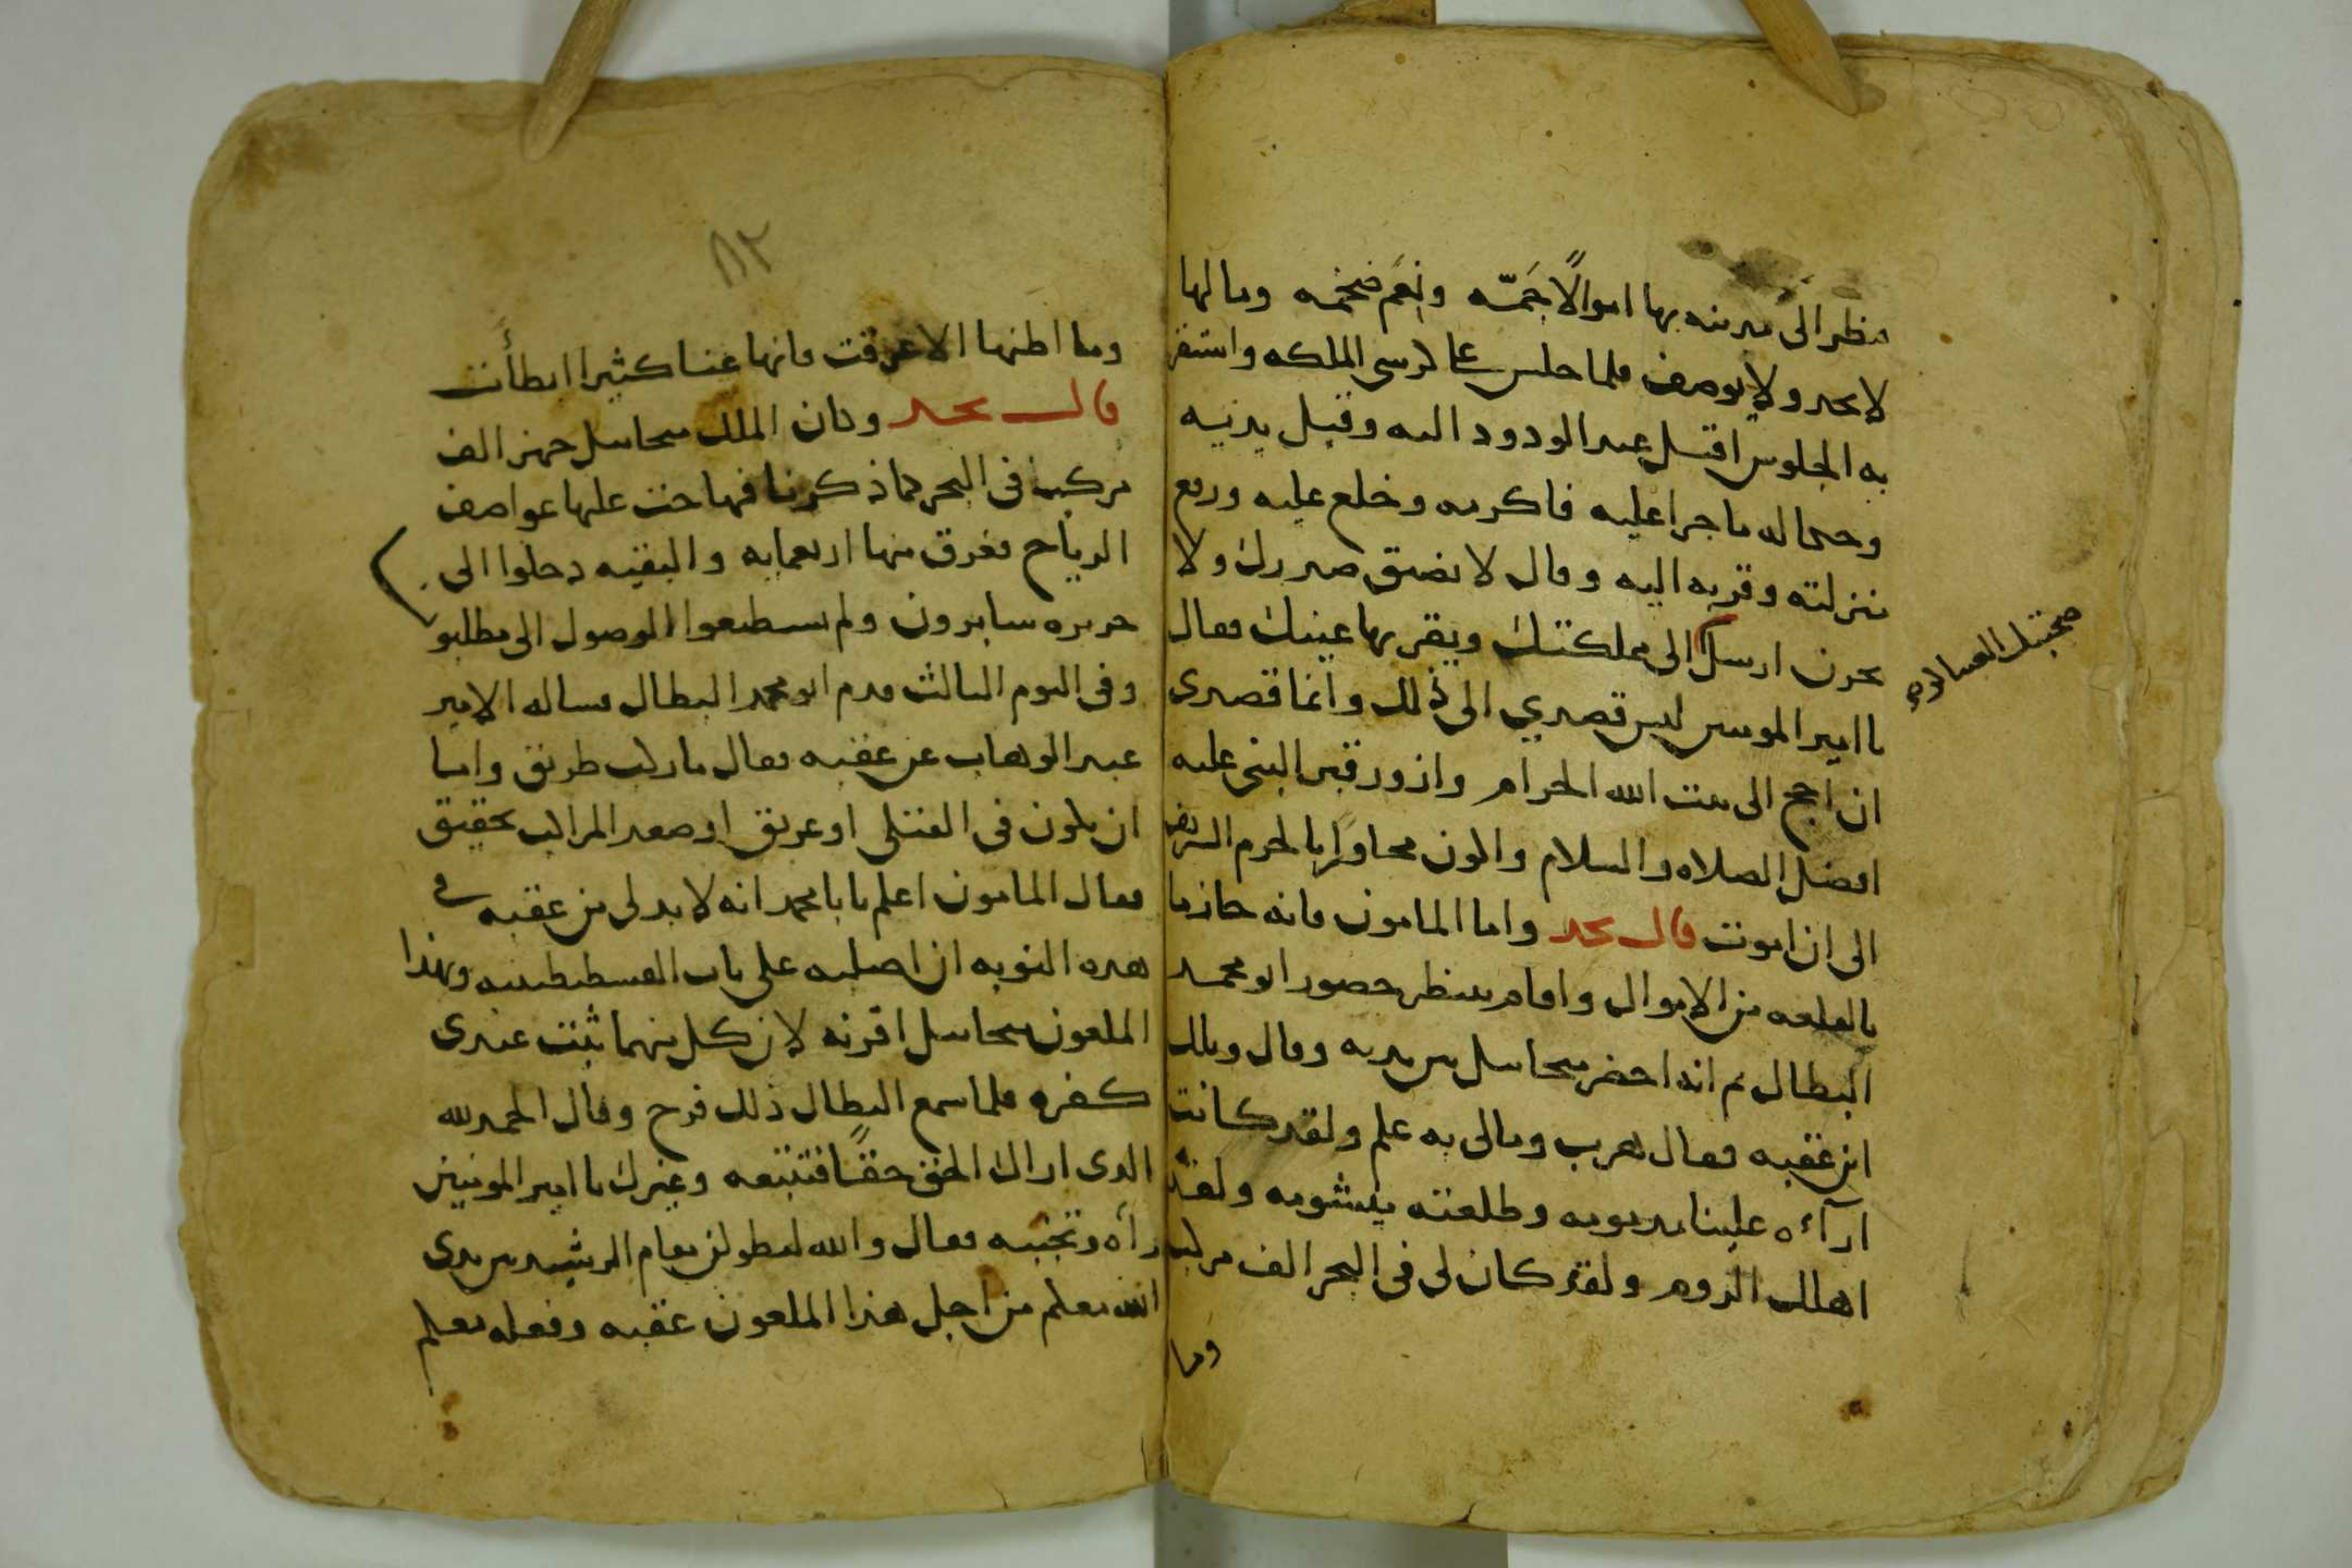 فنظر الى مدينه بها اموالًا جَمّه ونِعَم ضخمه ومالها
لا يحد ولا يوصف فلما جلس على كرسي المملكه واستقر
به الجلوس اقبل عبد الودود اليه وقبل يديه
وحكا له ما جرا عليه فاكرمه وخلع عليه ورفع
منزلته وقربه اليه وقال لا تضيق صدرك ولا
تحزن ارسلك الى مملكتك ويقر بها عينك فقال
يا امير المومنين ليس قصدي الى ذلك وانما قصدي
ان احج الى بيت الله الحرام وازور قبر النبي عليه
افضل الصلاه والسلام واكون مجاورا بالحرم الشريف
الى ان اموت قال نجد واما المامون فانه حاز ما
بالقلعه من الاموال واقام ينتظر حضور ابو محمد
البطال ثم انه احضر ميخاييل بين يديه وقال ويلك
اين عقبه فقال هرب ومالي به علم ولقد كانت
ارآءه علينا مديومه وطلعته ميشومه ولقد
اهلك الروم ولقد كان لى فى البحر الف مركب
وما
٨٢
وما اظنها الا غرقت فانها عنا كثيرا ابطأت
قال نجد وكان الملك ميخاييل جهز الف
مركب فى البحر كما ذكرنا فهاجت عليها عواصف
الرياح فغرق منها اربعمايه والبقيه دخلوا الى
جزيره سايرون ولم يستطيعوا الوصول الى مطلبو
وفى اليوم الثالث قدم ابو محمد البطال فساله الامير
عبد الوهاب عن عقبه فقال ما ركب طريق واما
ان يكون فى القتلى او غريق او صعد المراكب تحقيق
فقال المامون اعلم يا با محمد انه لا بد لى من عقبه فى
هذه النوبه ان اصلبه على باب القسطنطينيه وهذا
الملعون ميخاييل اقرنه لان كل منهما ثبت عندى
كفره فلما سمع البطال ذلك فرح وقال الحمد لله
الذى اراك الحق حقًا فتتبعه وغيرك يا امير المومنين
رأه وتجنبه فقال والله ليطولن مقام الرشيد بين يدى
الله تعلم من اجل هذا الملعون عقبه وفعله تعلم